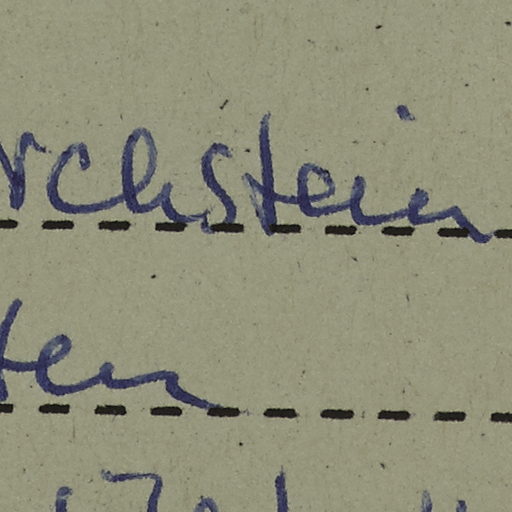 rchstein
ten